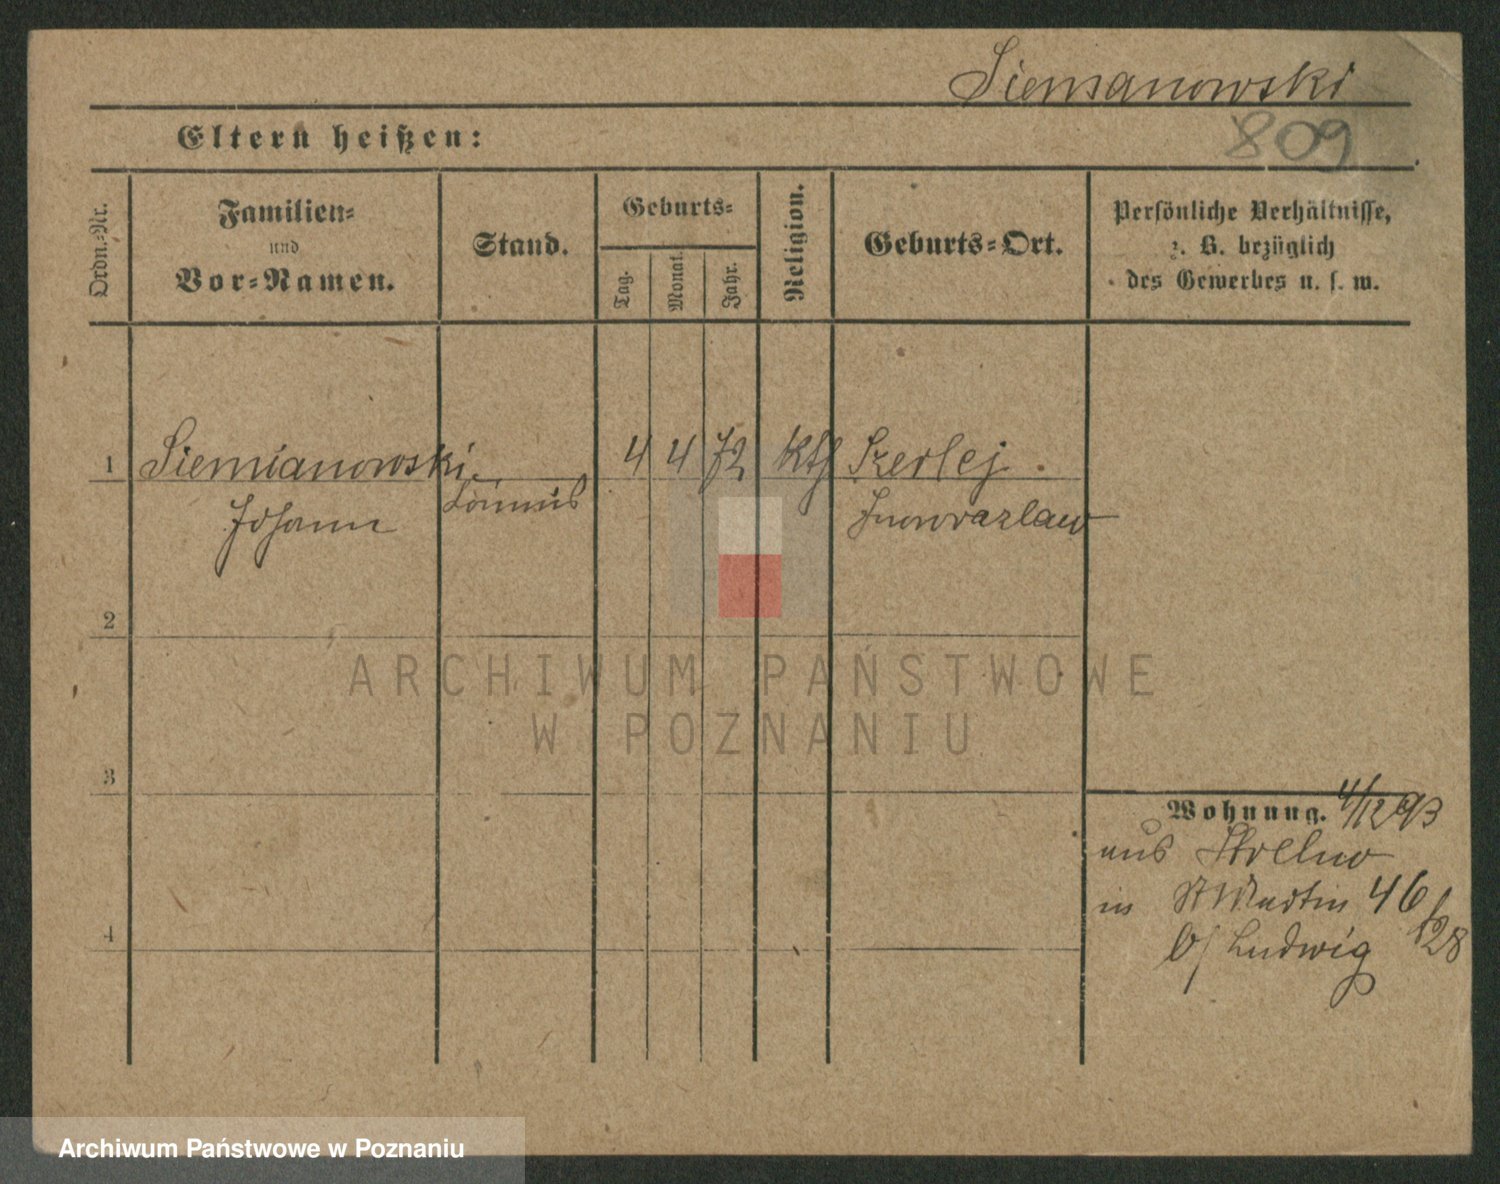 Siemianowski
809
Eltern heißen:
Ordn.-Nr.
Familien-
und
Vor-Namen.
Stand.
Geburts-
Tag.
Monat.
Jahr.
Religion.
Geburts-Ort.
Persönliche Verhältnisse,
z. B. bezüglich
des Gewerbes u. s. w.
1 Siemianowski 4 4 72 kth Szerlej
Johann Inowrazlaw
2
3
4
Wohnung. 4/12 93
aus
in St Martin 46
b/ Ludwig
ARCHIWUM PAŃSTWOWE
W POZNANIU
Archiwum Państwowe w Poznaniu